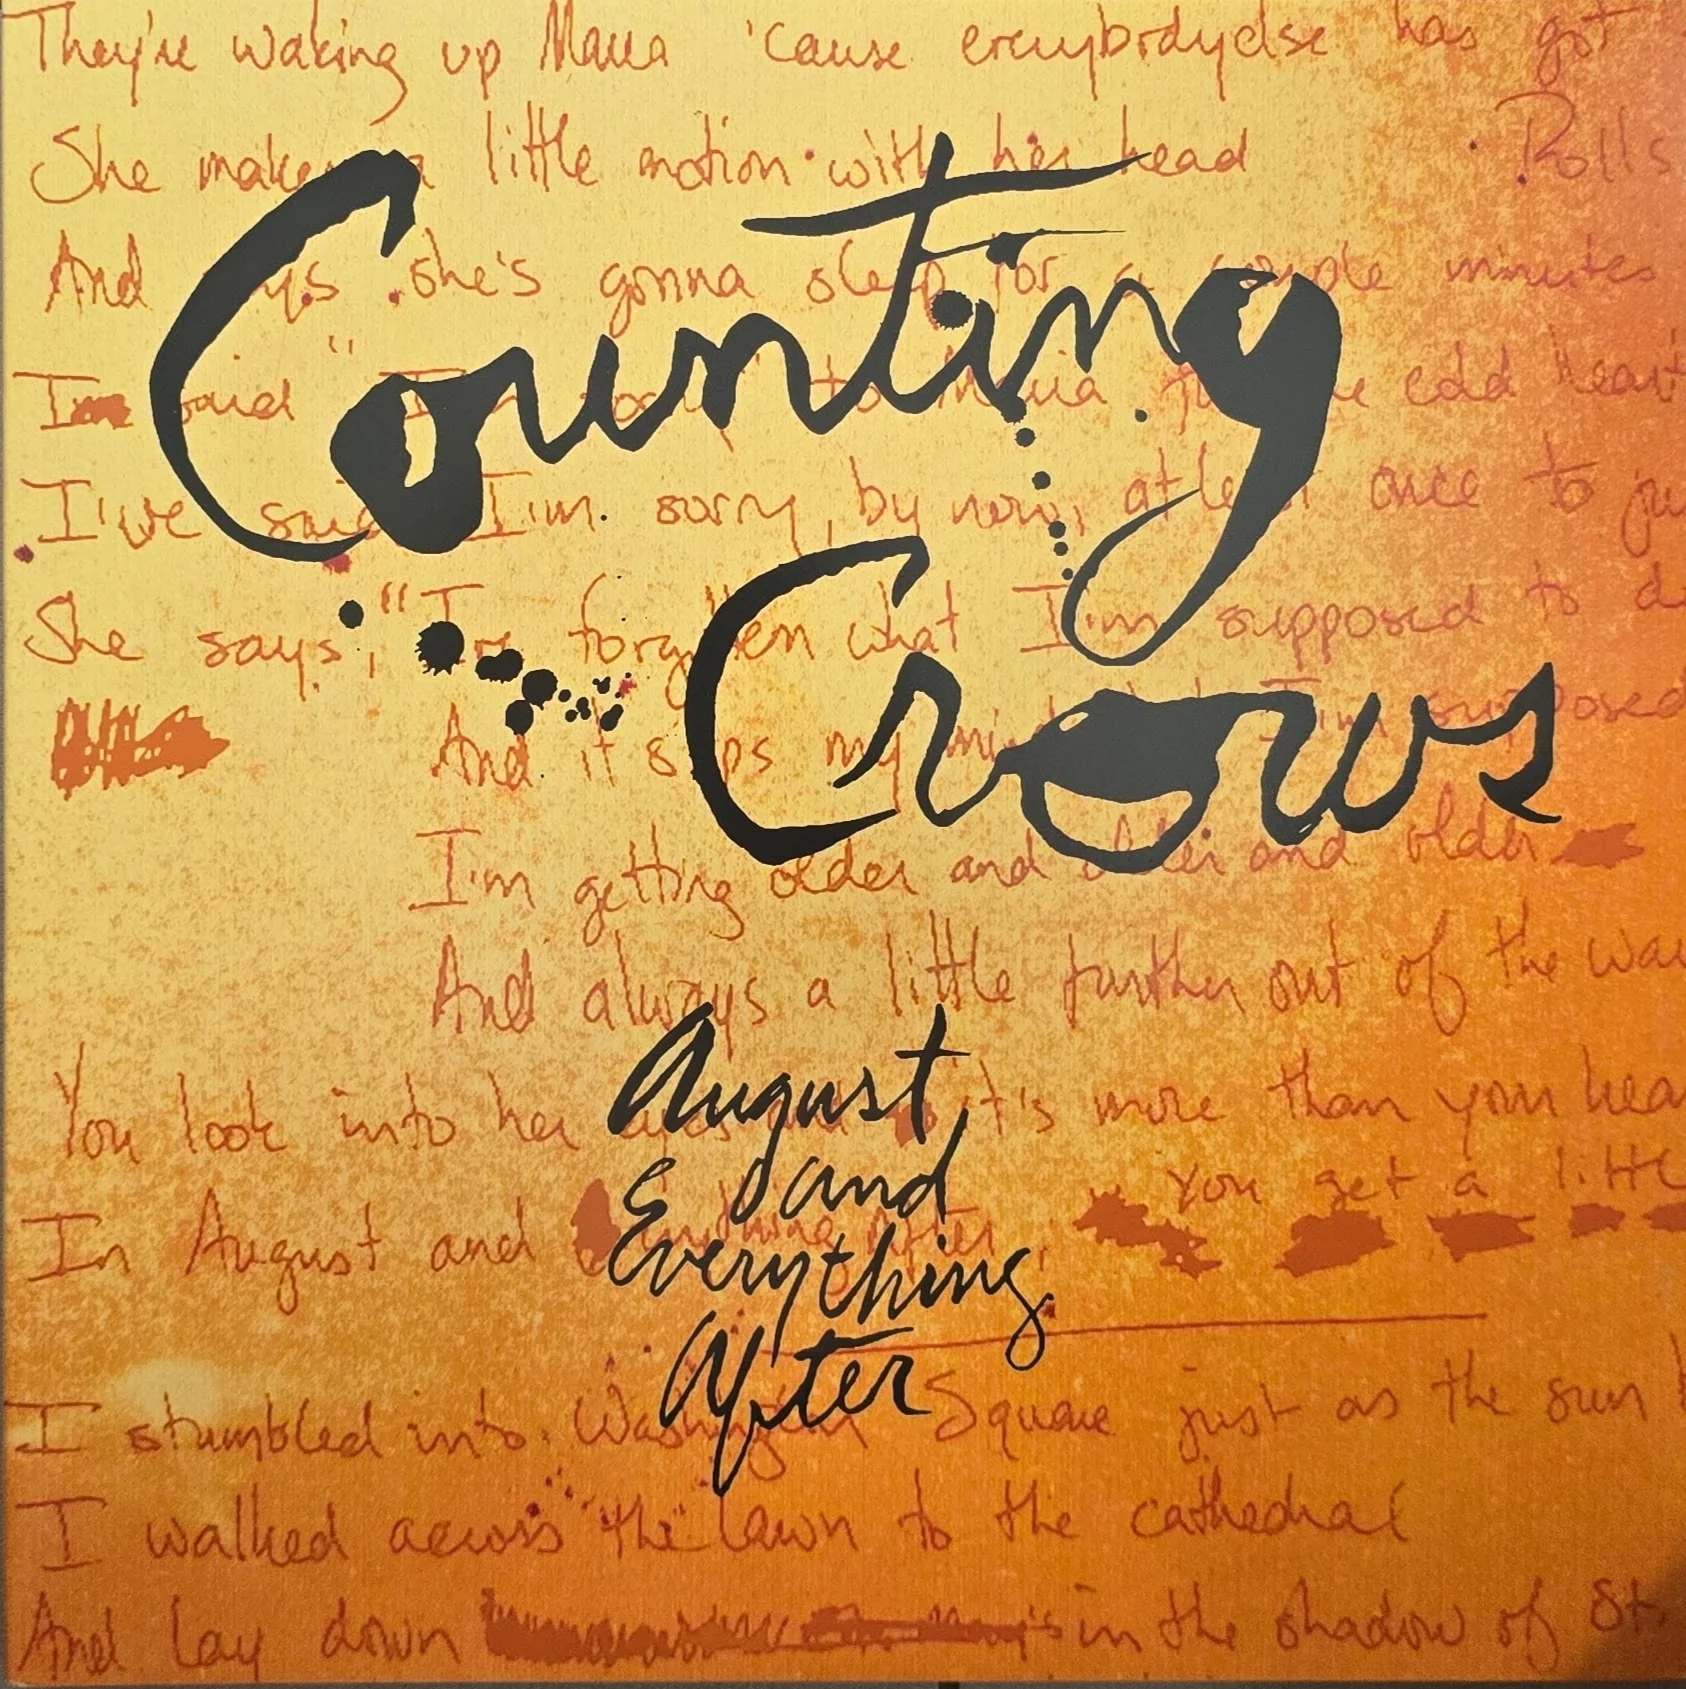 They're waking up Maria 'cause everybodyelse has got
She makes a little motion with her head
Rolls
And says she's gonna sleep for a couple minutes
Counting
I'm said "I'm sorry" to Maria for the cold heart
I've said I'm sorry, by now, at least once to ju
She says, "I've forgotten what I'm supposed to d
Crows
And it slips my mind what I'm supposed
I'm getting older and older and older
And always a little further out of the wa
August
You look into her eyes and it's more than your hea
and
you get a little
In August and Everything After,
Everything
After
I stumbled into Washington Square just as the sun
I walked across the lawn to the cathedral
And lay down in the shadow of St.